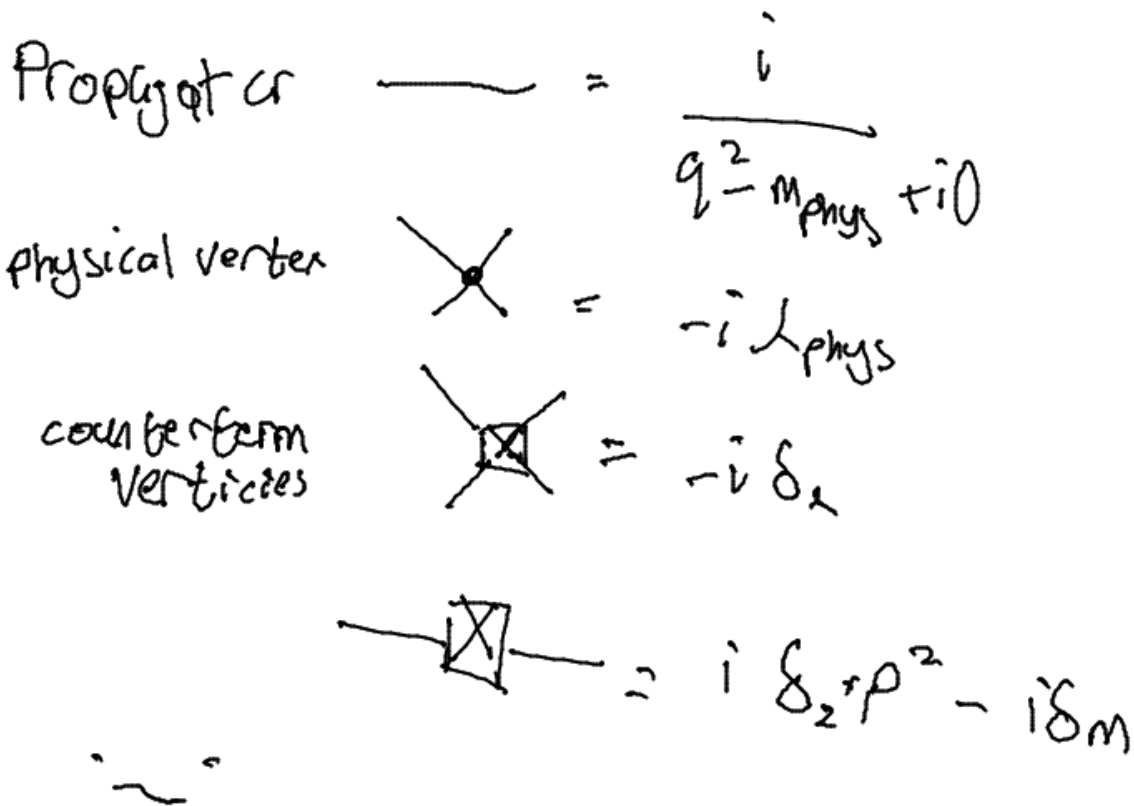 Propagator = i / q² - m_phys + i0
physical vertex = -i λ_phys
counterterm = -i δ_λ
verticies
= i δ_z · p² - i δ_m